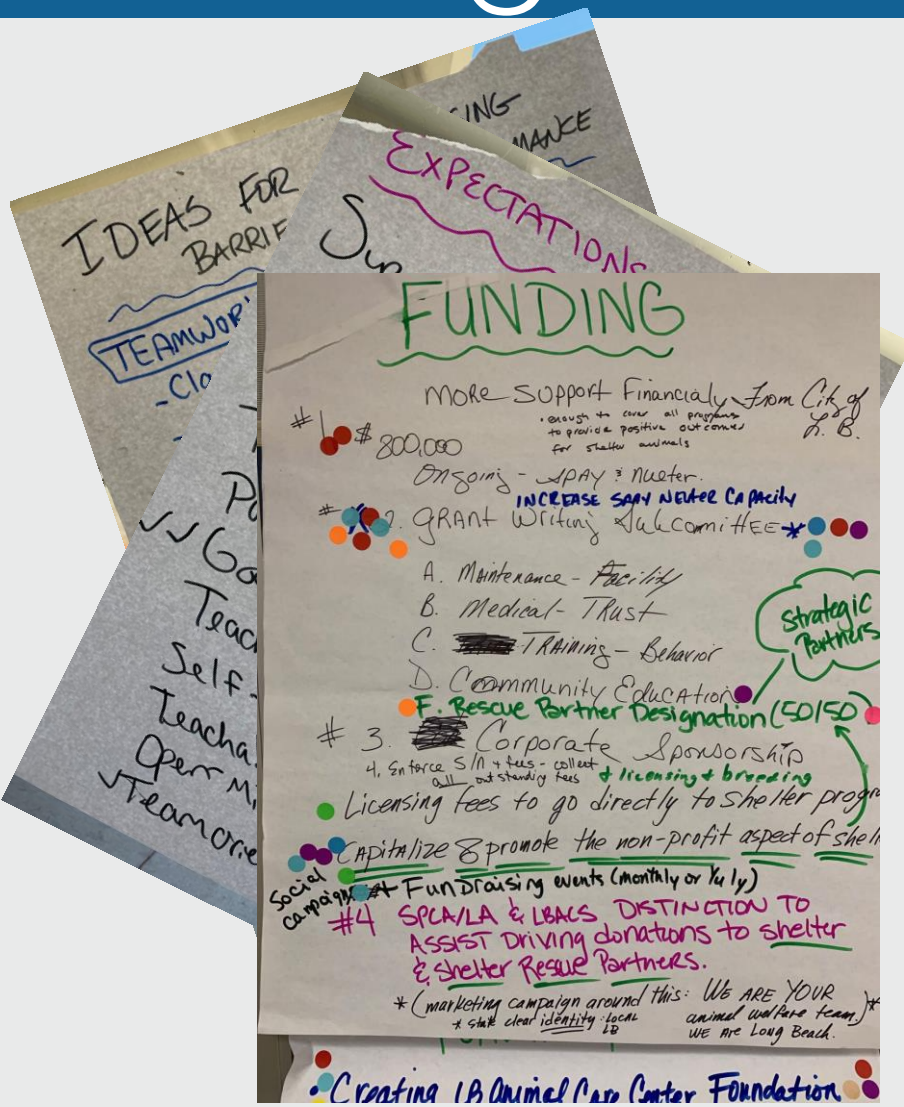 IDEAS FOR
BARRIE
SING
MANCE
TEAMWOR
-Clo
EXPECTATIONS
Sup
Po
Go
Teac
Self-
Teacha
Open Mi
Teamorie
FUNDING
MORE Support Financialy From City of
L.B.
• enough to cover all programs
to provide positive outcomes
for shelter animals
#1 $ 800,000
Ongoing - SPAY & Nueter.
INCREASE SPAY NEUTER CAPACITY
# 2. GRANT Writing Subcomittee *
A. Maintenance - Facility
B. Medical - TRust
C. TRAining - Behavior
D. Community Education
Strategic
Partners
F. Rescue Partner Designation (50/50)
# 3. Corporate Sponsorship
4. Enforce S/N + fees - collect
all outstanding fees + licensing + breeding
Licensing fees to go directly to Shelter progr
CAPITAlize & promote the non-profit aspect of shel
Social
campaigns + FunDraising events (monthly or Yrly)
#4 SPCA/LA & LBACS DISTINCTION TO
ASSIST Driving donations to shelter
& Shelter Resue Partners.
* (marketing campaign around this: WE ARE YOUR
animal welfare team,)*
* state clear identity: LOCAL
LB
WE ARE Long Beach.
• Creating LB Animal Care Center Foundation